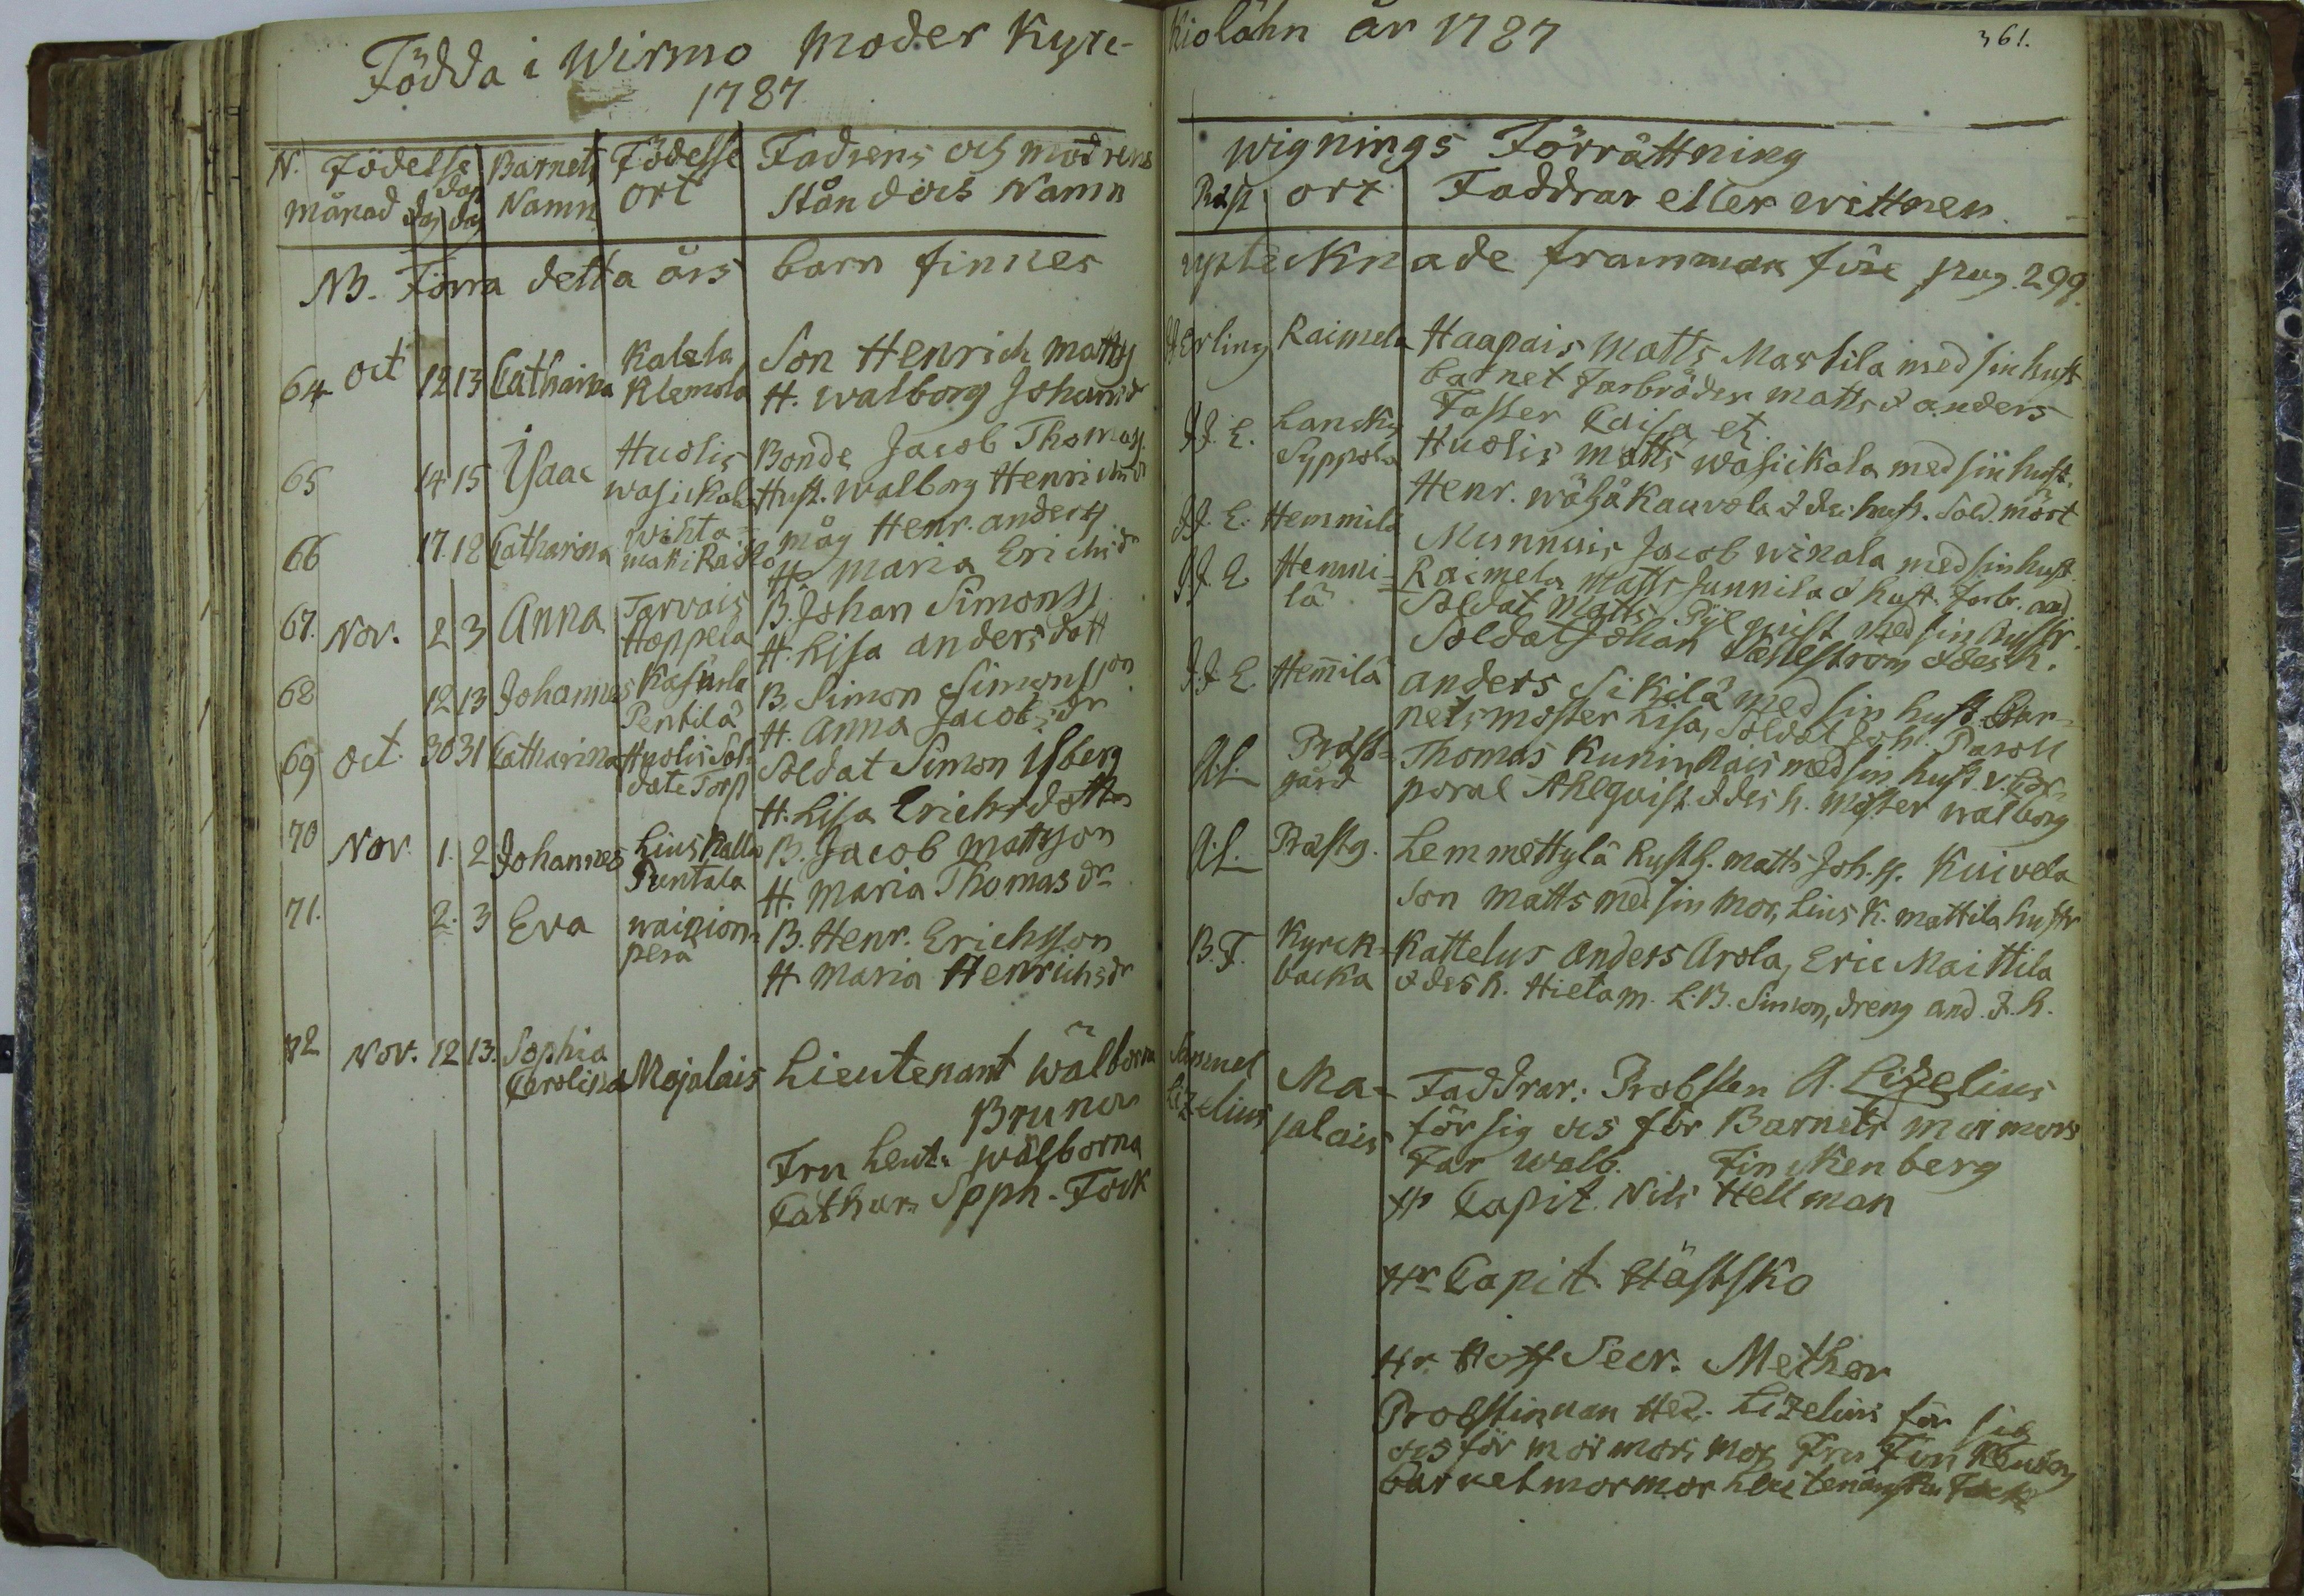 Födda i Wirmo Moder Kyrc-
1787
N. Födelse Barnets Födesse Fadrens och modrens
månad dag dop dag Namn ort Stånd och Namn
NB. Förra detta års barn finnes
64 Oct 12 13 Catharina Kalela Klemola Son Henrich Matts
H. Walborg Johansdr
65 14 15 Isaac Huolis wasickala Bonde Jacob Thomass.
Hust. Walborg Henrichsdr
66 17. 18 Catharina wihta maki Raisko måg Henr. anderss
H. Maria Erichsdr
67. Nov. 2 3 Anna Tarvais Hoppela B. Johan Simonss
H. Lisa andersdott
68 12 13 Johannes Kasurla Pentilä B. Simon Simonsson
H. Anna Jacobsdr
69 Oct. 30 31 Catharina Huolis Sol-date Torp Soldat Simon Isberg
H. Lisa Erichsdotter
70 Nov. 1. 2 Johannes Liuskalla Puntala B. Jacob Mattsson
H. Maria Thomasdr
71. 2. 3 Eva wainion-pera B. Henr. Erichsson
H Maria Henrichsdr
72 Nov. 12 13. Sophia Carolina Majalais Lieutenant wälborna
Brunow
Fru Leut: wälborna
Cathar: Soph. Fock
Kiolähn år 1787
361.
wignings Förrättning
Präst ort Faddrar eller wittnen
upteknade framman före pag. 299.
J Erling Raimela Haapais Matts Mastila med sin hust
barnet farbröder matts & anders
Faster Caisa et.
J.J. E. Lancky Syppola Huolis matts wäsickala med sin hust.
Henr. wähäkauvola & des hust. Sold. mört
J.J. E. Hemmilä Munnuis Jacob winala med sin hust.
J.J. E. Hemmi-lä Raimela Matts Junnila & hust. farb. and
Soldat Matts Pijlquist med sin hustr.
Soldat Johan & des h.
J.J. E. Hemilä anders Sikilä med sin hust. Bar-
nets moster Lisa, Soldat Joh. Paroll
A.L. Präst-gård Thomas Kuninkais med sin hust v. Cor-
poral Ahlqvist & des h. moster walborg
A.L. Prästg. Lemmettylä Rusth. matts Joh.s. Kuivela
son matts med sin mor, Lius K. mattila hustr
B.F. Kyrck-backa Kattelus Anders Arola, Eric Maittila
& des h. Hietam. L.B. Simon, dreng and. & h.
Samuel Lizelius Ma-jalais Faddrar: Probsten A. Lizelius
för sig och för Barnets mormors
Far walb. Finckenberg
Hr Capit. Nils Hellman
Hr Capit. Hästsko
Hr. Hoff Secr. Mether
Probstinnan Hed. Lizelius för sig
och för mormors mor Fru Finckenberg
barnet mormor Leutenanskan Fock